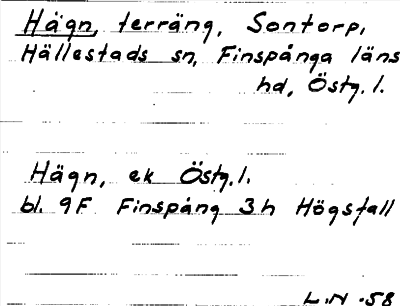 Hägn, terräng, Sontorp,
Hällestads sn, Finspånga läns
hd, Östg.l.
Hägn, ek Östg.l.
bl. 9F Finspång 3h Högsfall
L.N -58